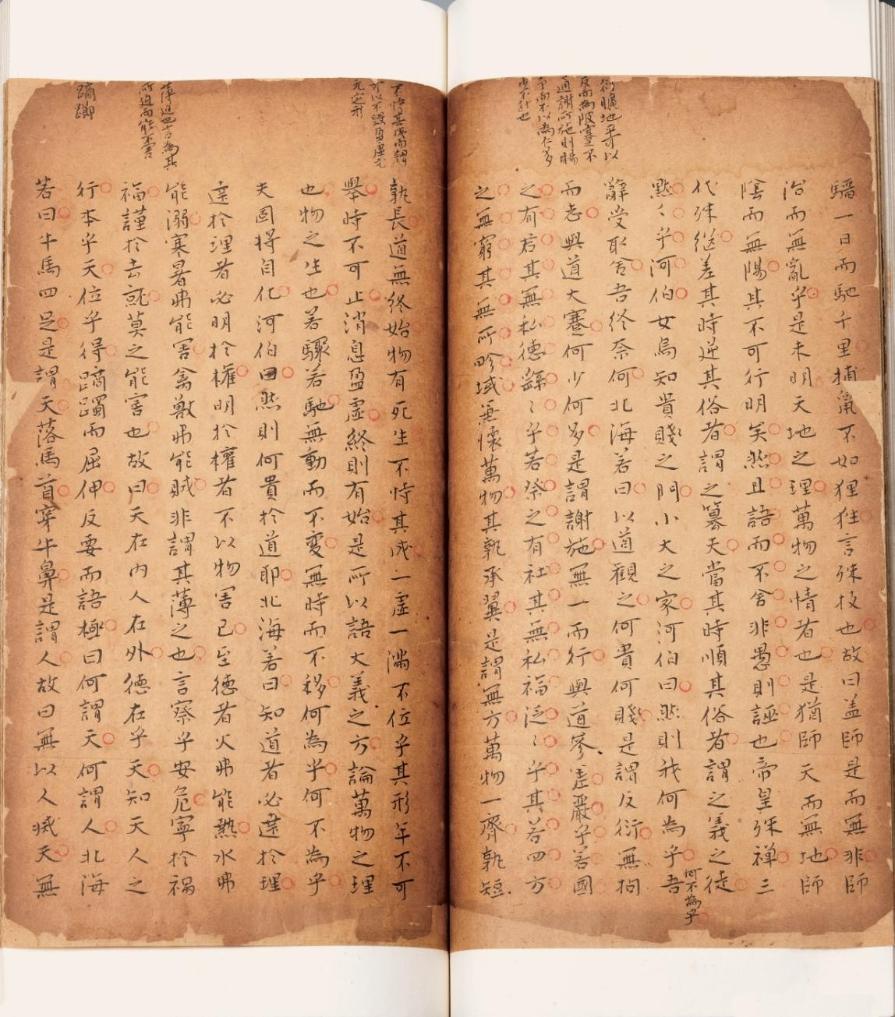 驥一日而馳千里捕鼠不如狸狌言殊技也故曰盖師是而無非師
治而無亂乎是未明天地之理萬物之情者也是猶師天而無地師
陰而無陽其不可行明矣然且語而不舍非愚則誣也帝皇殊禅三
代殊继差其時逆其俗者謂之篡夫當其時順其俗者謂之義之徒
默々乎河伯女烏知貴賤之門小大之家河伯曰然則我何為乎何不為乎吾
辭受取舍吾終奈何北海若曰以道觀之何貴何賤是謂反衍無拘
而志與道大蹇何少何多是謂謝施無一而行與道參差嚴乎若國
之有君其無私德繇々乎若祭之有社其無私福泛々乎其若四方
之無窮其無所畛域兼懷萬物其孰承翼是謂無方萬物一齊孰短
孰長道無終始物有死生不恃其成一虛一滿不位乎其形年不可
舉時不可止消息盈虛終則有始是所以語大義之方論萬物之理
也物之生也若驟若馳無動而不變無時而不移何為乎何不為乎
夫固將自化河伯曰然則何貴於道耶北海若曰知道者必達於理
達於理者必明於權明於權者不以物害己至德者火弗能熱水弗
能溺寒暑弗能害禽獸弗能賊非謂其薄之也言察乎安危寧於禍
福謹於去就莫之能害也故曰天在內人在外德在乎天知天人之
行本乎天位乎得蹢躅而屈伸反要而語極曰何謂天何謂人北海
若曰牛馬四足是謂天落馬首穿牛鼻是謂人故曰無以人滅天無
薄迫也言為其
所迫而能不害
蹢躅